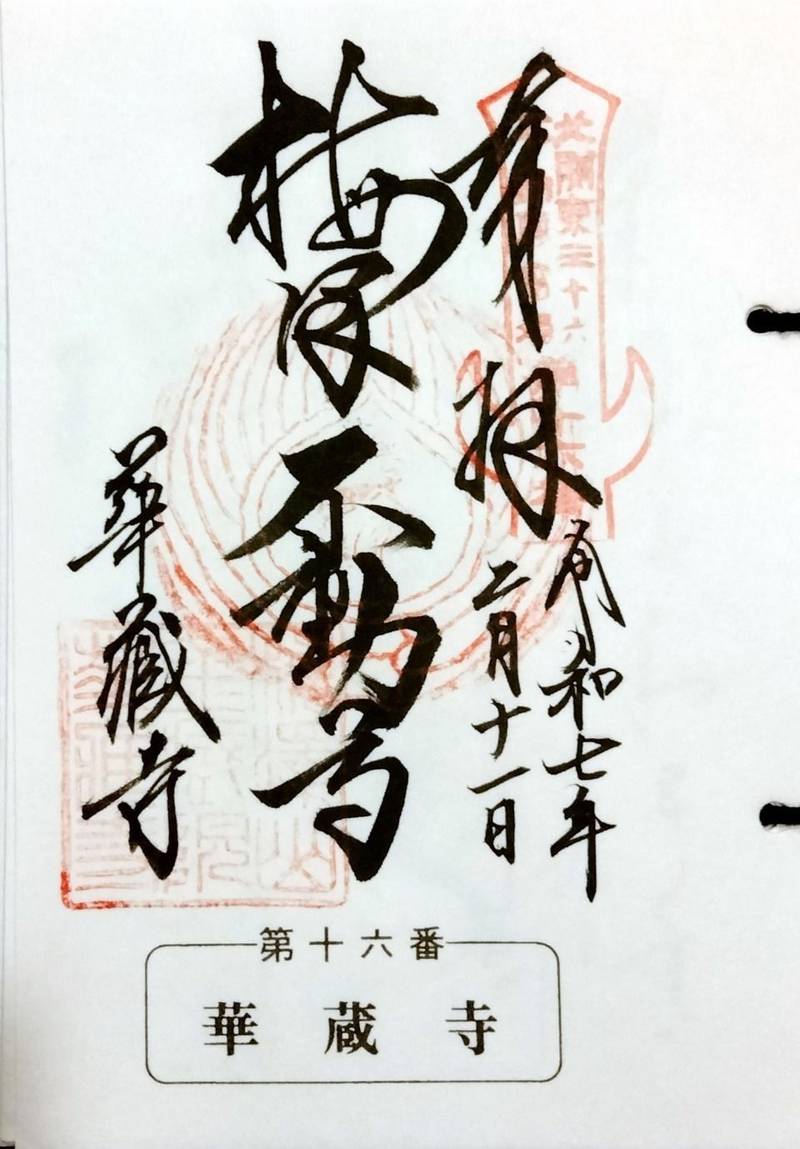 奉拝
令和七年
二月十一日
北関東三十六
梅沢不動尊
華蔵寺
第十六番
華蔵寺